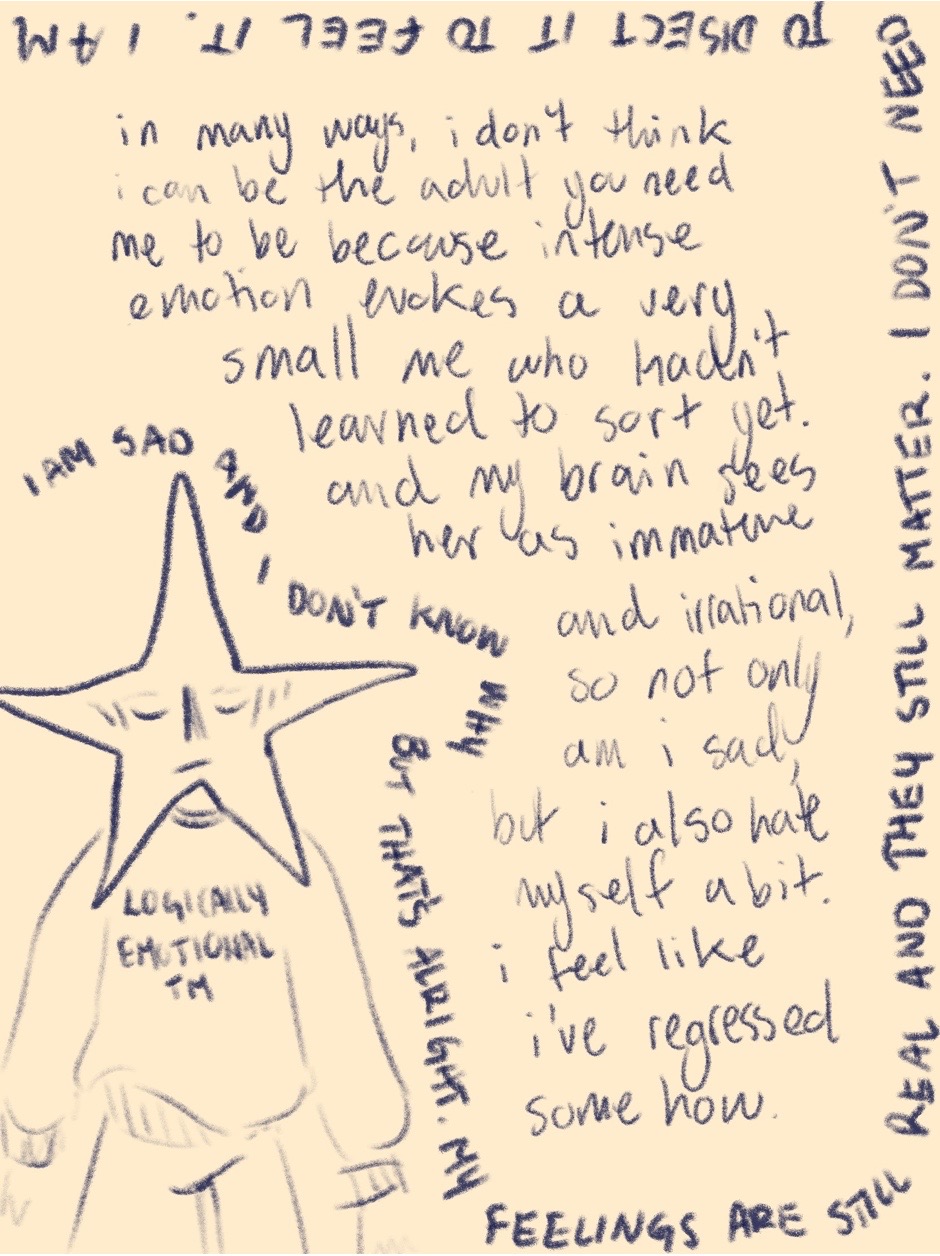 in many ways, i don't think
i can be the adult you need
me to be because intense
emotion evokes a very
small me who hadn't
learned to sort yet.
and my brain sees
her as immature
and irrational,
so not only
am i sad,
but i also hate
myself a bit.
i feel like
i've regressed
some how.
I AM SAD AND I DON'T KNOW WHY
BUT THAT'S ALRIGHT. MY
FEELINGS ARE STILL
REAL AND THEY STILL MATTER. I DON'T NEED
TO DISECT IT TO FEEL IT. I AM
LOGICALLY
EMOTIONAL
TM